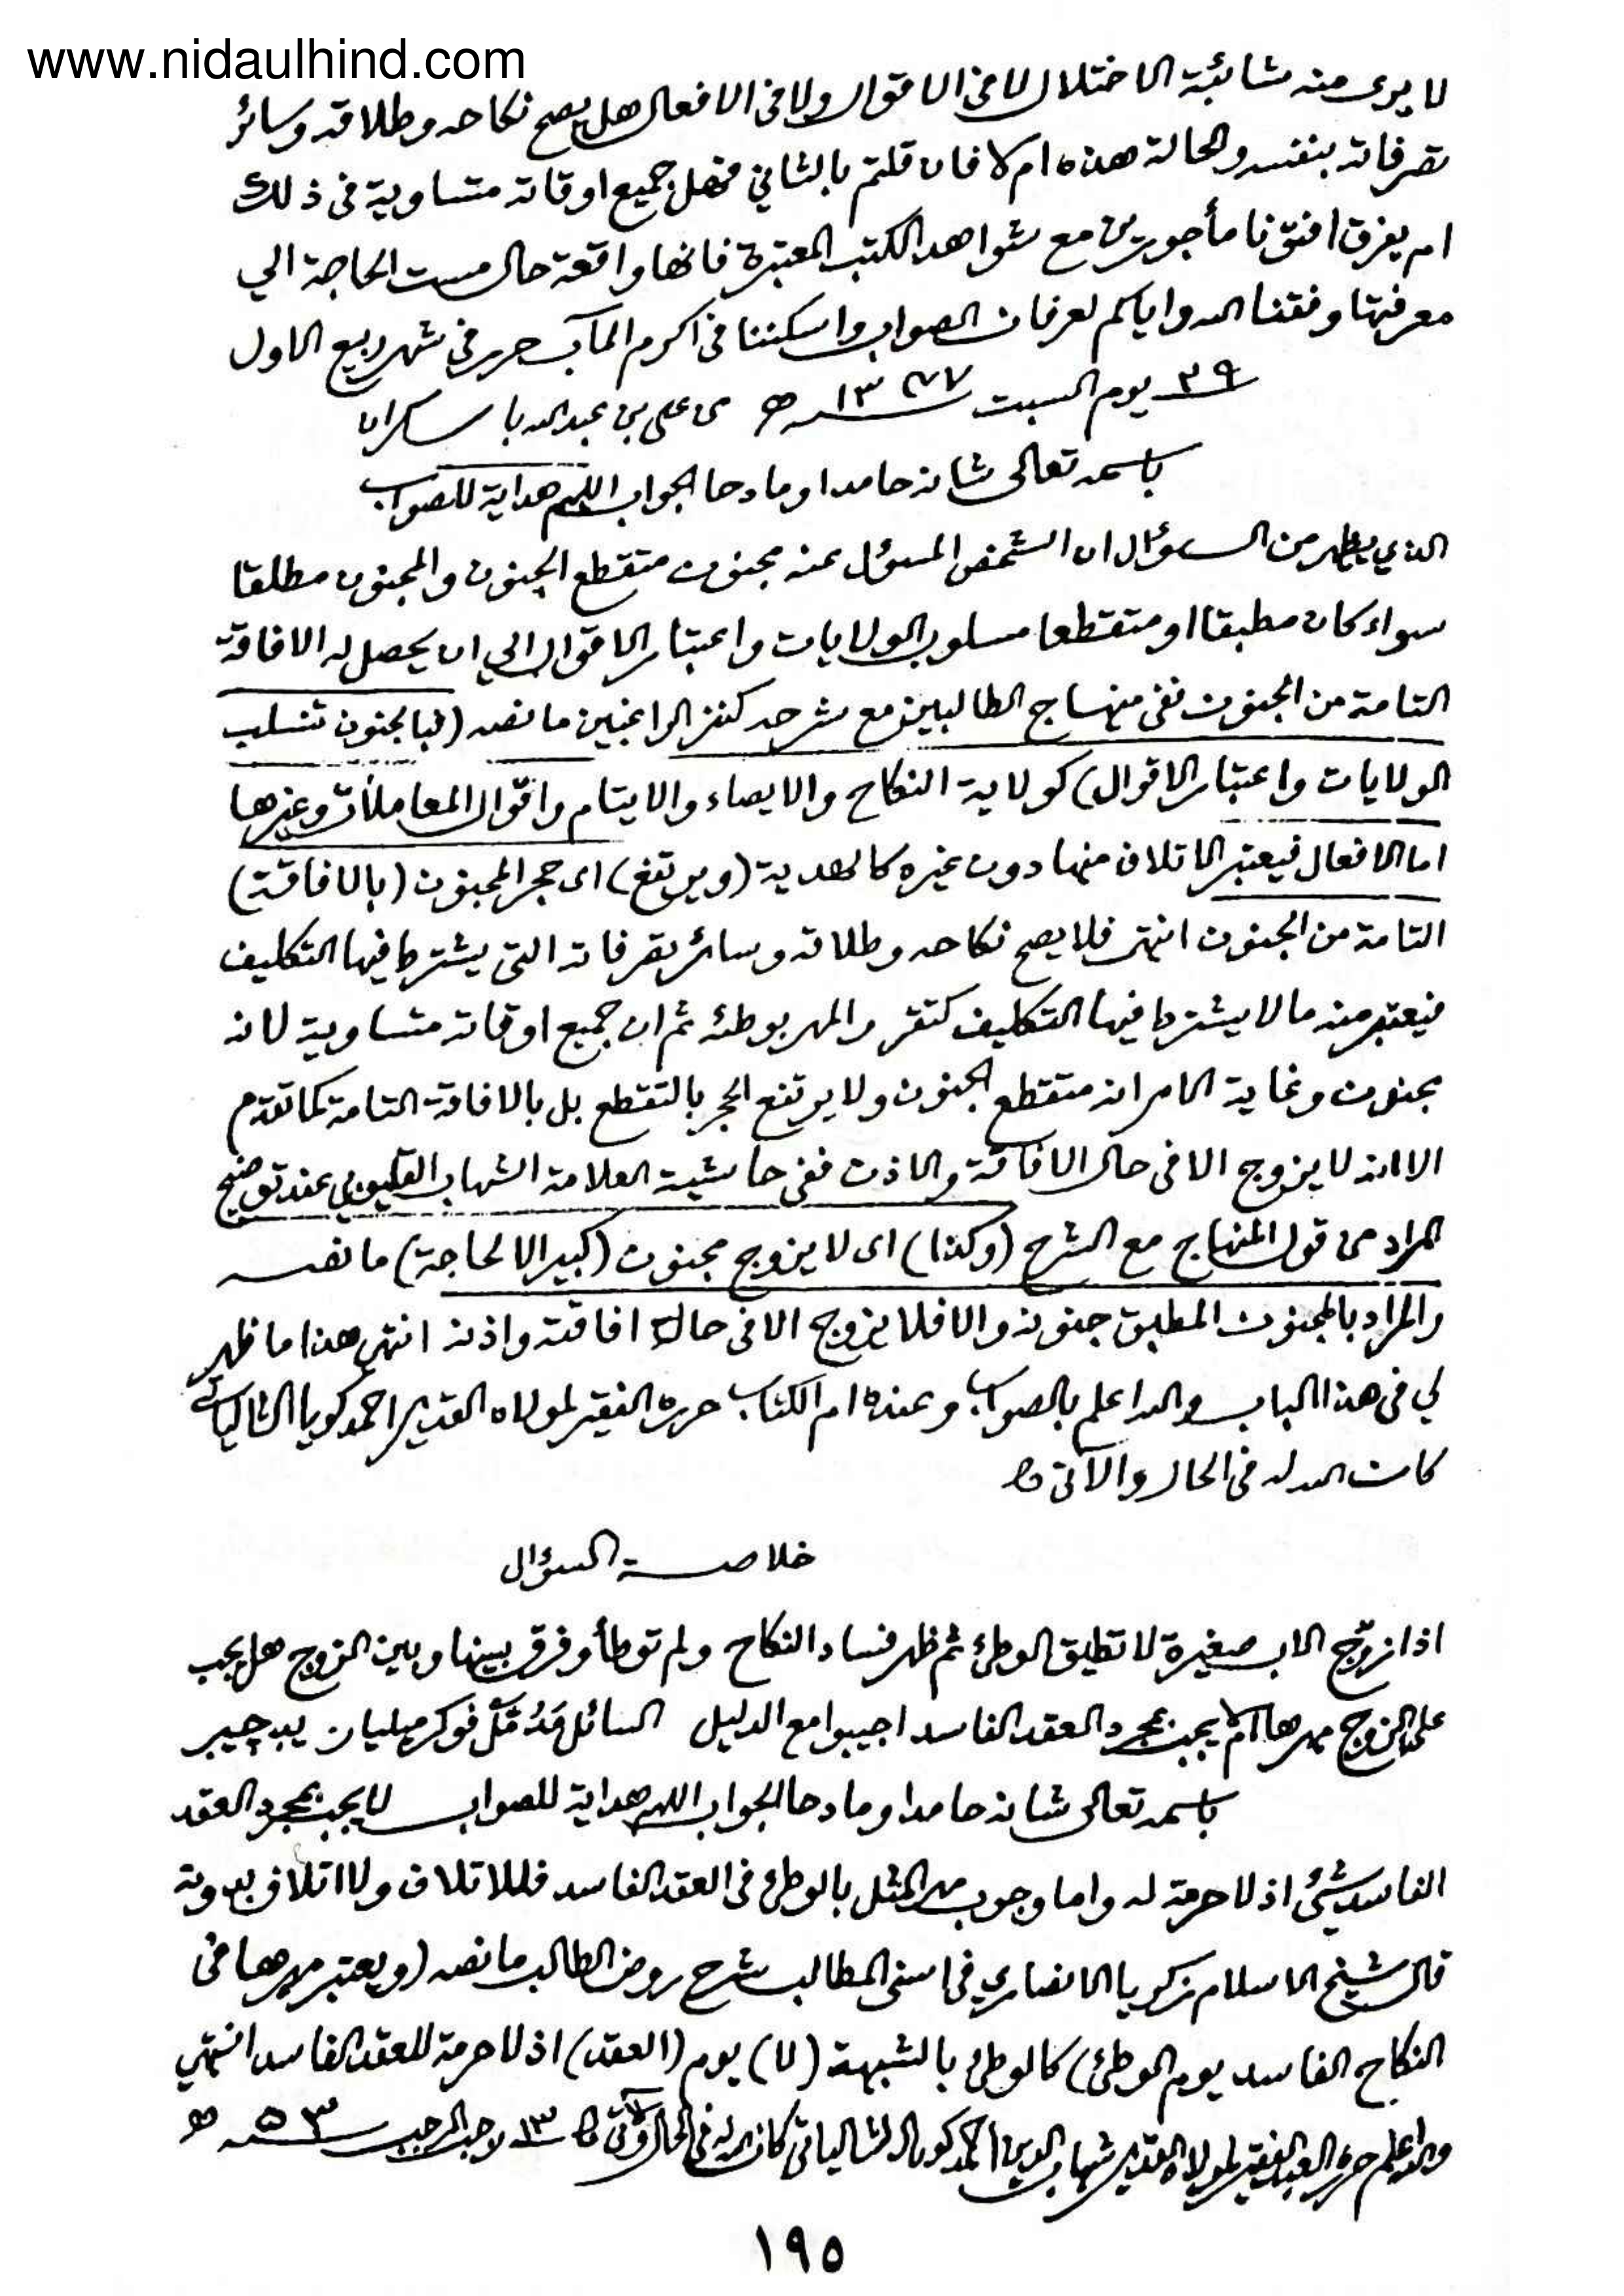 www.nidaulhind.com
لا يرى منه شائبة الاختلال لا فى الاقوال ولا فى الافعال هل يصح نكاحه وطلاقه وسائر
تصرفاته بنفسه والحالة هذه ام لا فان قلتم بالثاني فهل جميع اوقاته متساوية فى ذلك
ام يفرق افتونا مأجورين مع شواهد الكتب المعتبرة فانها واقعة حال مست الحاجة الي
معرفتها وفقنا الله واياكم لعرفان الصواب واسكننا فى اكرم المآب حرر فى شهر ربيع الاول
يوم السبت ه من على بن عبد الله با
باسمه تعالى شانه حامدا ومادحا الجواب اللهم هداية للصواب
الذي يظهر من السؤال ان الشخص المسؤل عنه مجنون متقطع الجنون والمجنون مطلقا
سواء كان مطبقا او متقطعا مسلوب الولايات واعتبار الاقوال الي ان يحصل له الافاقة
التامة من الجنون ففى منهاج الطالبين مع شرحه كنز الراغبين ما نصه (فبالجنون تنسلب
الولايات واعتبار الاقوال) كولاية النكاح والايصاء والايتام واقوال المعاملات وغيرها
اما الافعال فيعتبر الاتلاف منها دون غيره كالهدية (ويرتفع) اى حجر المجنون (بالافاقة)
التامة من الجنون انتهى فلا يصح نكاحه وطلاقه وسائر تصرفاته التى يشترط فيها التكليف
فيعتبر منه ما لا يشترط فيها التكليف كتقرر المهر بوطئه ثم ان جميع اوقاته متساوية لانه
مجنون وغاية الامر انه متقطع الجنون ولا يرتفع الحجر بالتقطع بل بالافاقة التامة كما تقدم
الا انه لا يزوج الا فى حال الافاقة والاذن ففى حاشية العلامة الشهاب القليوبي عند توضيح
المراد من قول المنهاج مع الشرح (وكذا) اى لا يزوج مجنون (كبير الا لحاجة) ما نصه
والمراد بالمجنون المطبق جنونه والا فلا يزوج الا فى حال افاقته واذنه انتهى هذا ما ظهر
لي فى هذا الباب والله اعلم بالصواب وعنده ام الكتاب حرره الفقير لمولاه القدير احمد كويا الشالياتى
كان الله له فى الحال والآتى
خلاصة السؤال
اذا زوّج الاب صغيرة لا تطيق الوطئ ثم ظهر فساد النكاح ولم توطأ وفرق بينها وبين الزوج هل يجب
على الزوج مهرها ام لا يجب بمجرد العقد الفاسد اجيبوا مع الدليل السائل
باسمه تعالى شانه حامدا ومادحا الجواب اللهم هداية للصواب لا يجب بمجرد العقد
الفاسد شئ اذ لا حرمة له واما وجوب مهر المثل بالوطئ فى العقد الفاسد فللاتلاف ولا اتلاف بدونه
قال شيخ الاسلام زكريا الانصاري فى اسنى المطالب شرح روض الطالب ما نصه (ويعتبر مهرها فى
النكاح الفاسد يوم الوطئ) كالوطئ بالشبهة (لا) يوم (العقد) اذ لا حرمة للعقد الفاسد انتهي
والله اعلم حرره العبد الفقير لمولاه القدير شهاب الدين احمد كويا الشالياتى كان الله له فى الحال والآتى ١٣ رجب المرجب ٥٣ ه
١٩٥